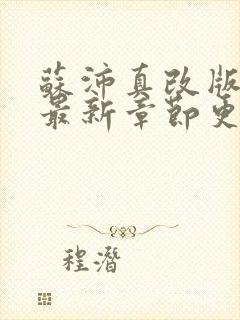 蘇沛真改版
最新章節更
程潛